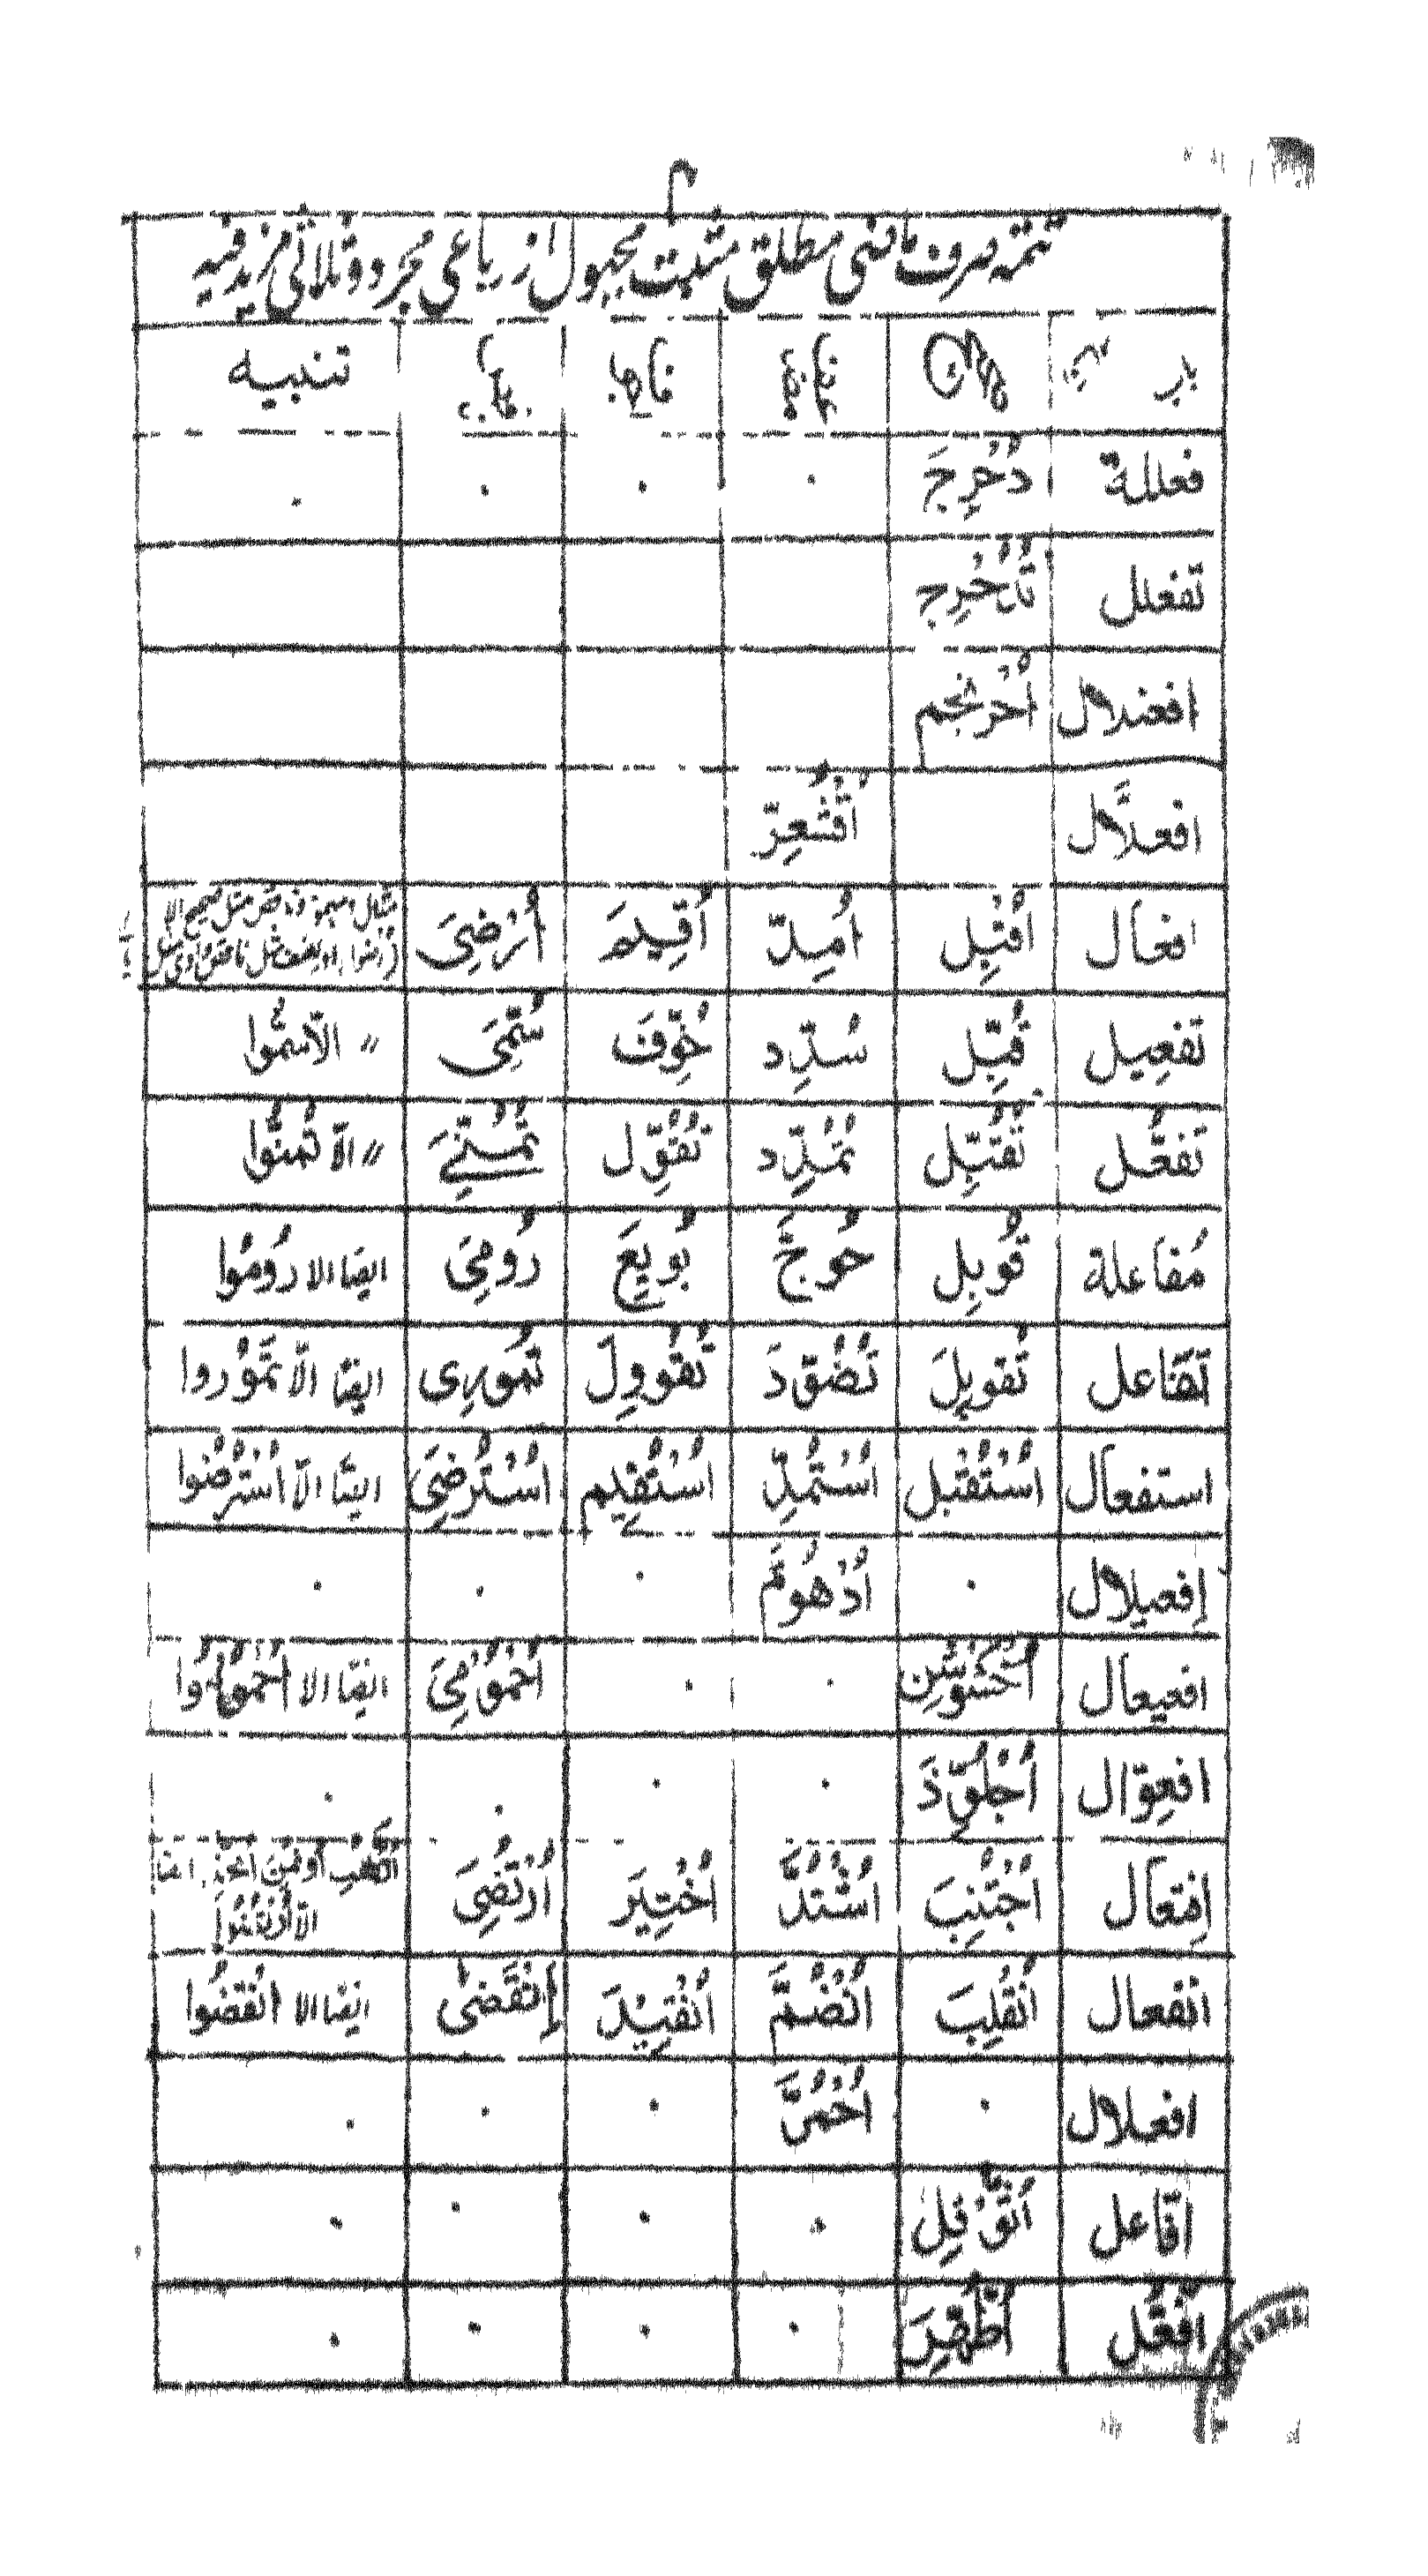 تتمه صرف ماضی مطلق مثبت مجہول از رباعی مجرد و ثلاثی مزید فیہ
باب تنبیہ
فعللة دُحْرِجَ . . . .
تفعلل تُدُحْرِج
افعنلال اُحْرنجم
افعلَّال اُقْشُعِرّ
افعال اُقْبِل اُمِدّ اُقِیمَ اُرْضِیَ مثال و مہموز و ناقص مثل صحیح الا
تفعیل قُبِّل سُدِّد خُوِّفَ سُمِّیَ 〃 الّا سُمُّوا
تفعُّل تُقُبِّل تُمُدِّد تُقُوِّل تُمُنِّیَ 〃 الّا تُمُنُّوا
مُفاعلة قُوبِل حُوجَّ بُویِعَ رُومِیَ ایضا الا رُومُوا
تفاعل تُقوبِلَ تُقُووِل تُمُورِی ایضًا الّا تُمُوْرُوا
استفعال اُسْتُقْبِل اُسْتُمِدّ اُسْتُقِیم اُسْتُرْضِیَ ایضًا الّا اُسْتُرْضُوا
اِفعیلال . اُدْهُومّ . . .
افعیعال اُخْشُوشِن . . ایضا الا
افعِوّال اُجْلُوِّذَ . . . .
اِفتعال اُجْتُنِبَ اُشْتُدَّ اُخْتِیَر اُرْتُضِیَ
الّا اُرْتُضُوا
انفعال اُنْقُلِبَ اُنْضُمَّ اُنْقِیْدَ اِنْقَضٰی ایضا الا اُنْقُضُوا
افعلال . اُحْمُرَّ . . .
افّاعل . . . .
افّعُّل اُطُّهِّرَ . . . .